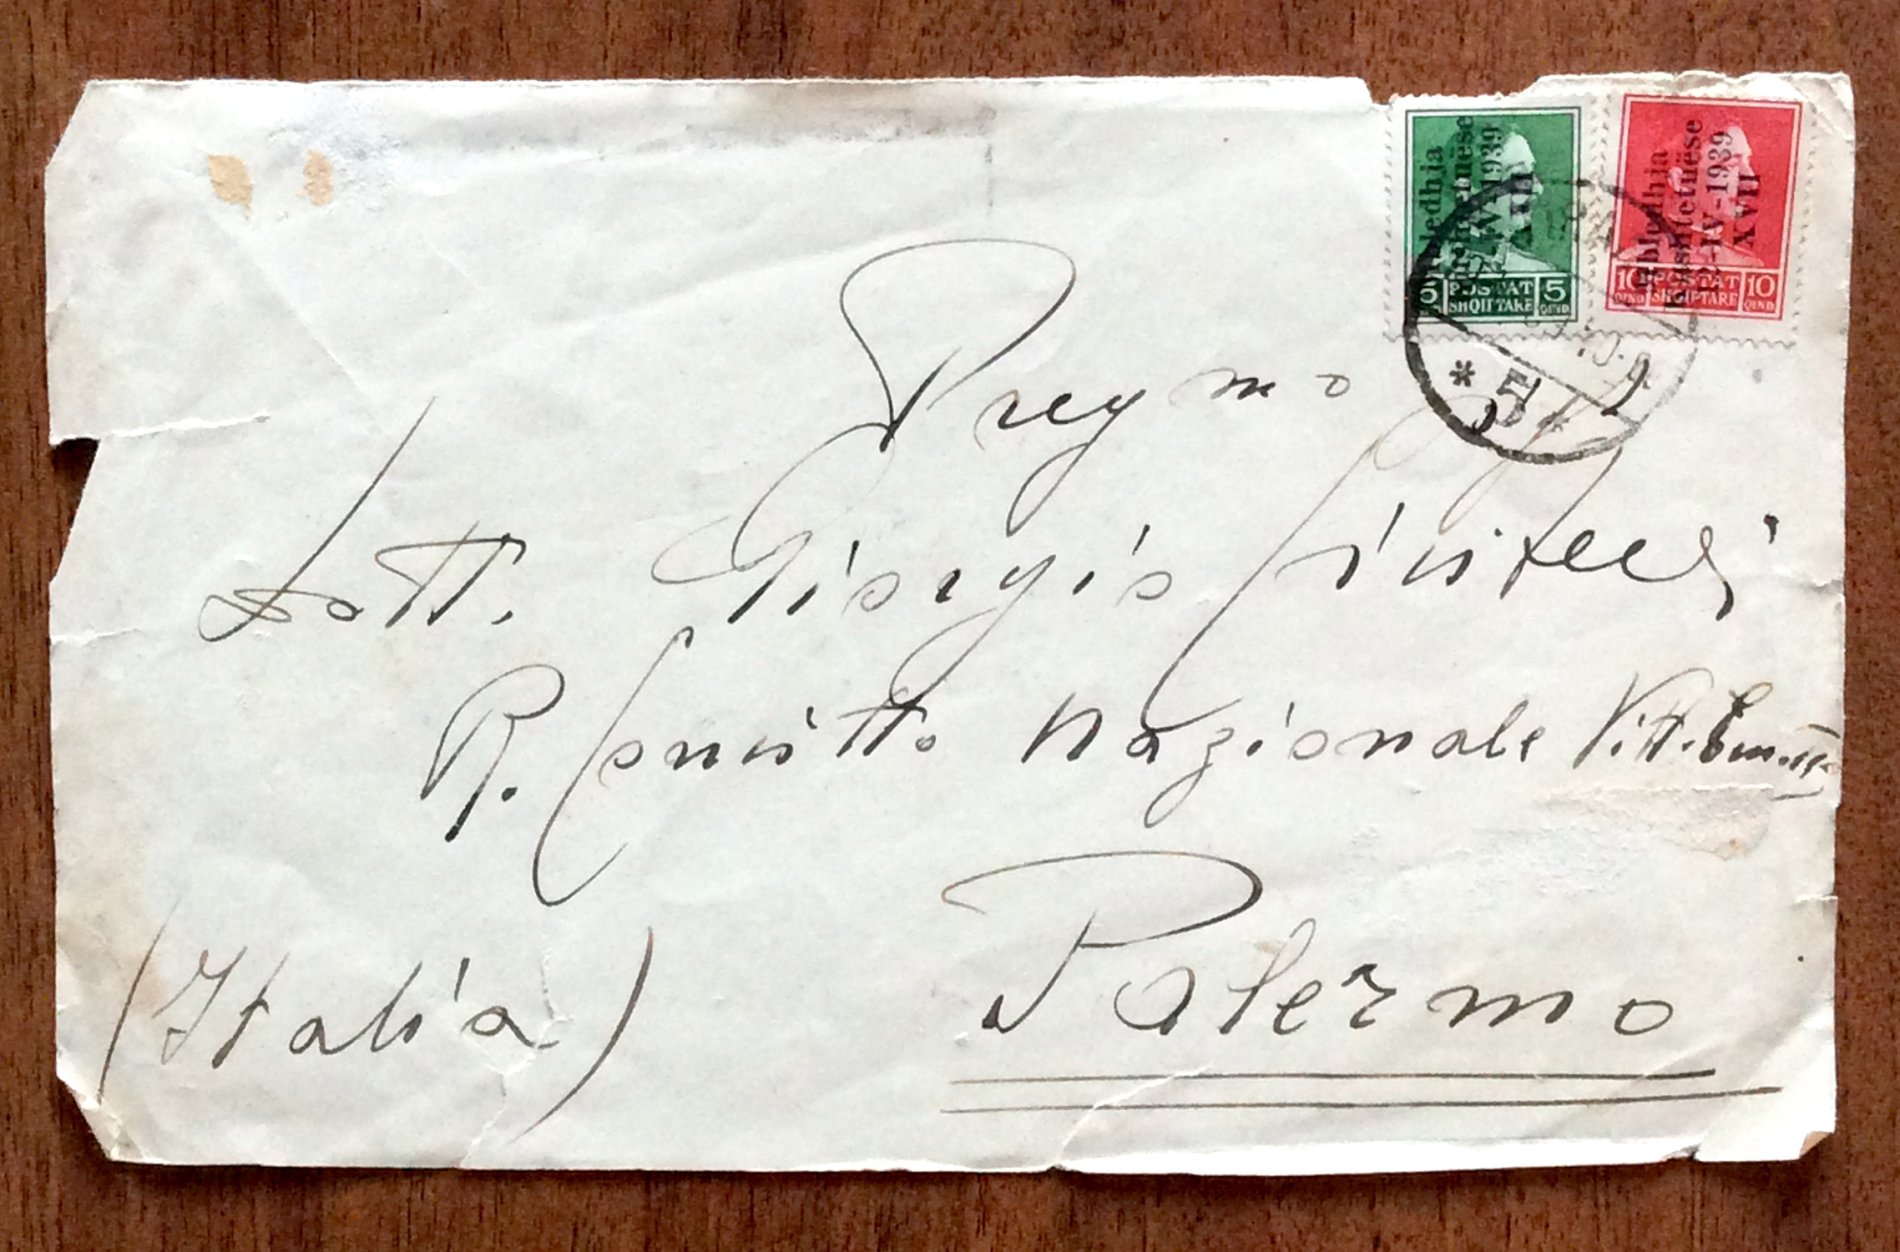 Mbledhja
Kushtetuëse
12-IV-1939
XVII
5 POSTAT 5
SHQIPTARE QIND
Mbledhja
Kushtetuëse
12-IV-1939
XVII
10 POSTAT 10
QIND SHQIPTARE QIND
* 5
Pregmo
Dott. Giorgio
R. Convitto Nazionale Vitt. Em.
Palermo
(Italia)